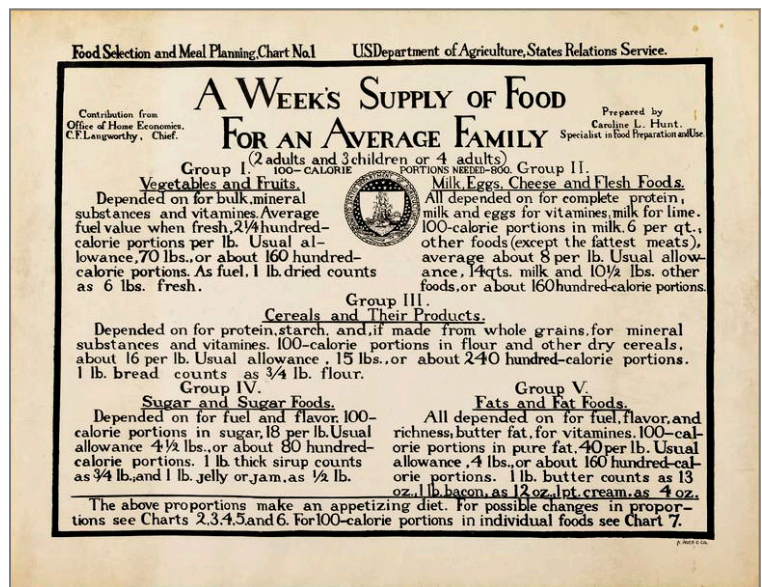 Food Selection and Meal Planning, Chart No.1 U.S Department of Agriculture, States Relations Service.
A WEEK'S SUPPLY OF FOOD
FOR AN AVERAGE FAMILY
Contribution from
Office of Home Economics.
C.F. Langworthy, Chief.
Prepared by
Caroline L. Hunt.
Specialist in Food Preparation and Use.
(2 adults and 3 children or 4 adults)
100-CALORIE PORTIONS NEEDED-800.
Group I.
Vegetables and Fruits.
Depended on for bulk, mineral
substances and vitamines. Average
fuel value when fresh, 2¼ hundred-
calorie portions per lb. Usual al-
lowance, 70 lbs., or about 160 hundred-
calorie portions. As fuel, 1 lb. dried counts
as 6 lbs. fresh.
Group II.
Milk, Eggs, Cheese and Flesh Foods.
All depended on for complete protein;
milk and eggs for vitamines; milk for lime.
100-calorie portions in milk, 6 per qt.;
other foods (except the fattest meats),
average about 8 per lb. Usual allow-
ance, 14 qts. milk and 10½ lbs. other
foods, or about 160 hundred-calorie portions.
Group III.
Cereals and Their Products.
Depended on for protein, starch, and, if made from whole grains, for mineral
substances and vitamines. 100-calorie portions in flour and other dry cereals,
about 16 per lb. Usual allowance, 15 lbs., or about 240 hundred-calorie portions.
1 lb. bread counts as ¾ lb. flour.
Group IV.
Sugar and Sugar Foods.
Depended on for fuel and flavor. 100-
calorie portions in sugar, 18 per lb. Usual
allowance 4½ lbs., or about 80 hundred-
calorie portions. 1 lb. thick sirup counts
as ¾ lb.; and 1 lb. jelly or jam, as ½ lb.
Group V.
Fats and Fat Foods.
All depended on for fuel, flavor, and
richness; butter fat, for vitamines. 100-cal-
orie portions in pure fat, 40 per lb. Usual
allowance, 4 lbs., or about 160 hundred-cal-
orie portions. 1 lb. butter counts as 13
oz., 1 lb. bacon, as 12 oz., 1 pt. cream, as 4 oz.
The above proportions make an appetizing diet. For possible changes in propor-
tions see Charts 2, 3, 4, 5, and 6. For 100-calorie portions in individual foods see Chart 7.